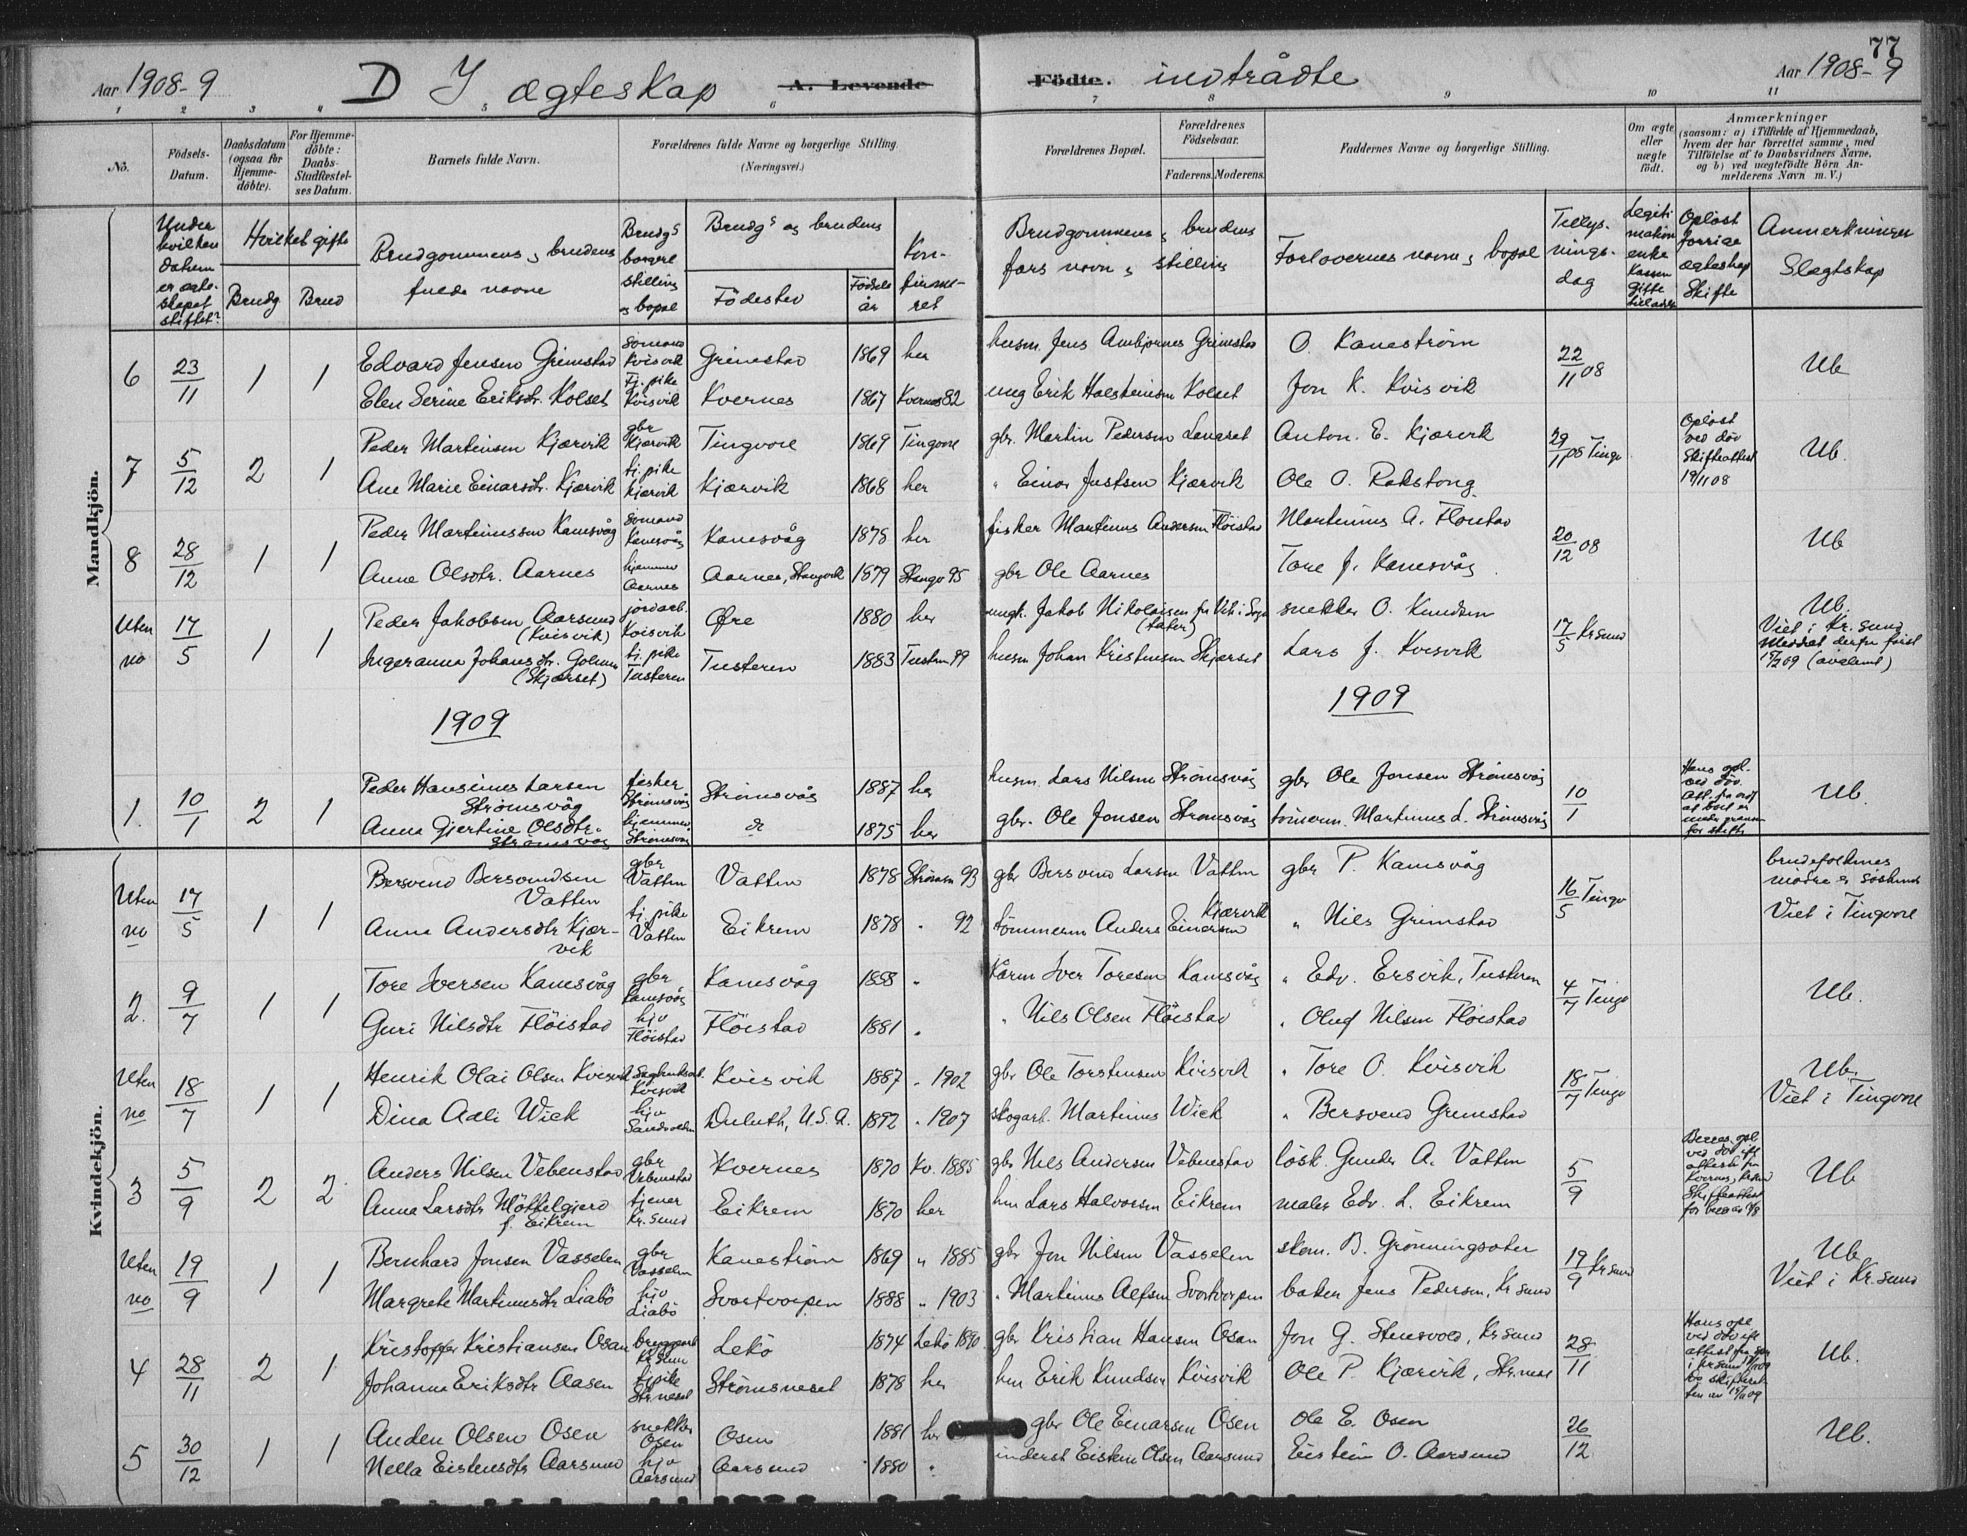 77
Aar 1908-9 D I ægteskap A. Levende Födte. indtrådte Aar 1908-9
1 2 3 4 5 6 7 8 9 10 11
No. Födsels-Datum. Daabsdatum (ogsaa for Hjemme-döbte). For Hjemme-döbte: Daabs-Stadfæstel-ses Datum. Barnets fulde Navn. Forældrenes fulde Navne og borgerlige Stilling. (Næringsvei.) Forældrenes Bopæl. Forældrenes Födselsaar. Faderens. Moderens. Faddernes Navne og borgerlige Stilling. Om ægte eller uægte födt. Anmærkninger (saasom: a) i Tilfælde af Hjemmedaab, hvem der har forrettet samme, med Tilföielse af to Daabsvidners Navne, og b) ved uægtefödte Börn An-melderens Navn m. V.)
Under hvilken datum er ægte-skapet stiftet? Hvilket gifte Brudg Brud Brudgommens, brudens fulde navne Brudgs borgerl stilling og bopæl Brudgs og brudens Födested Födsels år Kon-firme-ret Brudgommens, brudens fars navn, stilling Forlovernes navn, bopæl Tillys-nings-dag Opløst forrige ægteskap Skifte Anmerkninger Slægtskap
Mandkjön.
6 23/11 1 1 Edvard Jensen Grimstad Kvisvik Grimstad 1869 her husm. Jens Grimstad O. Kaneström 22/11 08 Ub
Elen Serine Eriksdr. Kolset tj. pike Kvisvik Kvernes 1867 Kvernes 82 ung Erik Kolset Jon K. Kvisvik
7 5/12 2 1 Peder Martinsen Kjærvik gbr Kjærvik Tingvoll 1869 Tingvoll gbr. Martin Pedersen Anton. E. Kjærvik 29/11 08 Tingv Opløst ved død Skifteattest 19/11 08 Ub.
Ane Marie Einarsdr. Kjærvik tj. pike Kjærvik Kjærvik 1868 her " Einar Justsen Kjærvik Ole O. Rakstang
8 28/12 1 1 Peder Martinussen Kanesvåg Kanesvåg Kanesvåg 1878 her fisker Martinus Andersen Flöistad Martinus A. Flöistad 20/12 08 Ub
Anne Olsdtr. Aarnes hjemme Aarnes Aarnes, Stangvik 1879 Stangv 95 gbr Ole Aarnes Tore J. Kanesvåg
Uten no 17/5 1 1 Peder Jakobsen Aarsund (Kvisvik) jordarb. Kvisvik Øre 1880 her Jakob Nikolaisen fr Vik i Sogn (tater) snekker O. Knudsen 17/5 Kr sund Ub. Viet i Kr. sund
Ingeranna Johansdr. (Skjærset) tj. pike Tusteren Tusteren 1883 Tustern 99 husm Johan Kristensen Skjærset Lars J. Kvisvik
1909 1909
1. 10/1 2 1 Peder Hansinus Larsen Strömsvåg fisker Strömsvåg Strömsvåg 1887 her husm. Lars Nilsen Strömsvåg gbr Ole Jonsen Strömsvåg 10/1 Ub.
Anna Gjertine Olsdtr. Strömsvåg hjemme Strömsvåg do 1875 her gbr. Ole Jonsen Strömsvåg tömerm. Martinus L. Strömsvåg
Kvindekjön.
Uten no 17/5 1 1 Bersvend Bersvendsen Vatten gbr Vatten Vatten 1878 93 gbr Bersvend Larsen Vatten gbr P. Kanesvåg 16/5 Tingv brudefolkenes mødre er søskend Viet i Tingvoll
Anna Andersdtr Kjær-vik tj. pike Vatten Eikrem 1878 " 92 tömmerm Anders Einarsen Kjærvik " Nils Grimstad
2. 9/7 1 1 Tore Iversen Kanesvåg gbr Kanesvåg Kanesvåg 1888 " Kårm Iver Toresen Kanesvåg " Edv. Ersvik, Tusteren 4/7 Tingv Ub.
Guri Nilsdtr Flöistad hjv Flöistad Flöistad 1881 " " Nils Olsen Flöistad " Oluf Nilsen Flöistad
Uten no 18/7 1 1 Henrik Olai Olsen Kvisvik Kvisvik Kvisvik 1887 " 1902 gbr Ole Torstensen Kvisvik " Tore O. Kvisvik 18/7 Tingv Ub. Viet i Tingvoll
Dina Aali Wick hjv Duluth, U.S.A. 1892 " 1907 skogarb. Martinus Wick " Bersvend Grimstad
3 5/9 2 2 Anders Nilsen Vebenstad gbr Vebenstad Kvernes 1870 Kv. 1885 gbr Nils Andersen Vebenstad lösk. Gunder A. Vatten 5/9 Ub
Anna Larsdtr f. Eikrem tjener Kr. sund Eikrem 1870 her hm Lars Halvorsen Eikrem maler Edv. L. Eikrem
Uten no 19/9 1 1 Bernhard Jonsen Vasselen gbr Vasselen Kaneström 1869 " 1885 gbr Jon Nilsen Vasselen skom. B. Grönningsæter 19/9 Kr sund Ub Viet i Kr. sund
Margrete Martinusdtr Liabö hjv Liabö Svartvarpen 1888 " 1903 " Martinus Alfsen Svartvarpen baker Jens Pedersen, Kr sund
4 28/11 2 1 Kristoffer Kristiansen Osan Kr sun Lekö 1874 Lekö 1890 gbr Kristian Hansen Osan Jon G. Stensvold, Kr sund 28/11 Ub.
Johanna Eriksdtr Aasen tj pike Str.neset Strömsneset 1878 her hm Erik Knudsen Kvisvik Ole P. Kjærvik, Str.nese
5 30/12 1 1 Anden Olsen Osen snekker Osen Osen 1881 her gbr Ole Einarsen Osen Ole E. Osen 26/12 Ub.
Nella Eistensdtr Aarsund hjv Aarsund Aarsund 1880 " inderst Eisten Olsen Aarsund Eistein O. Aarsund